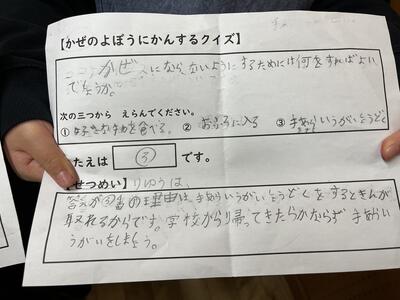 【かぜのよぼうにかんするクイズ】
かぜにならないようにするためには何をすればよい
でしょうか。
次の三つから えらんでください。
① 好きな を食べる。 ② おふろに入る ③ 手あらいうがいしょうどく
たえは ③ です。
【せつめい】りゆうは、
答えが③番の理由は、手あらいうがいしょうどくをするときんが
取れるからです。学校から帰ってきたらかならず手あらい
うがいをしましょう。